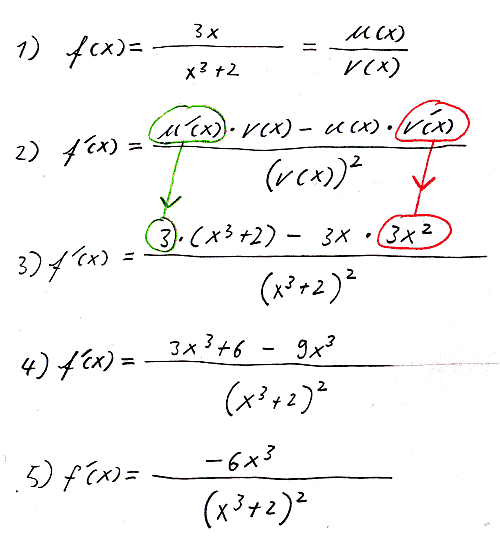 1) f(x) = 3x / (x³+2) = u(x) / v(x)
2) f´(x) = (u´(x) · v(x) − u(x) · v´(x)) / (v(x))²
3) f´(x) = (3 · (x³+2) − 3x · 3x²) / (x³+2)²
4) f´(x) = (3x³+6 − 9x³) / (x³+2)²
5) f´(x) = −6x³ / (x³+2)²